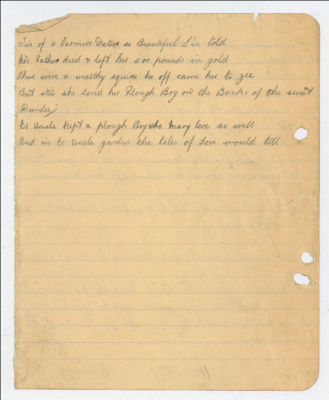 Tis of a Farmers Datter so Beautiful I'm told
her Father died & left her 500 pounds in gold
Thur were a wealthy squire he off came her to see
But still she loved her Plough Boy on the Banks of the sweet
Dundee
Er Uncle kept a plough Boy who Mary love so well
And in er Uncle garden the tales of Love would tell